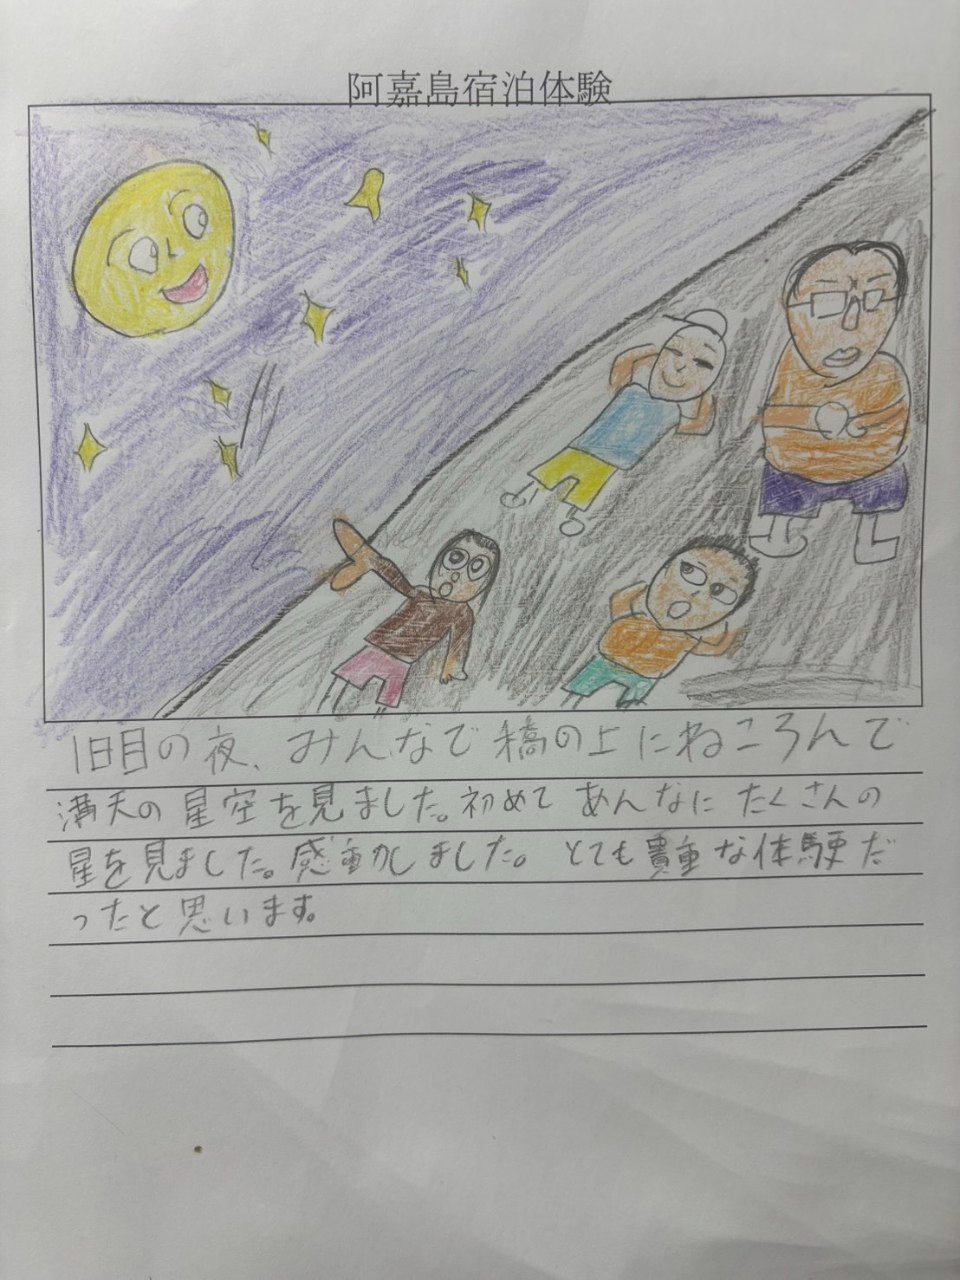 阿嘉島宿泊体験
1日目の夜、みんなで橋の上にねころんで
満天の星空を見ました。初めてあんなにたくさんの
星を見ました。感動しました。とても貴重な体験だ
ったと思います。